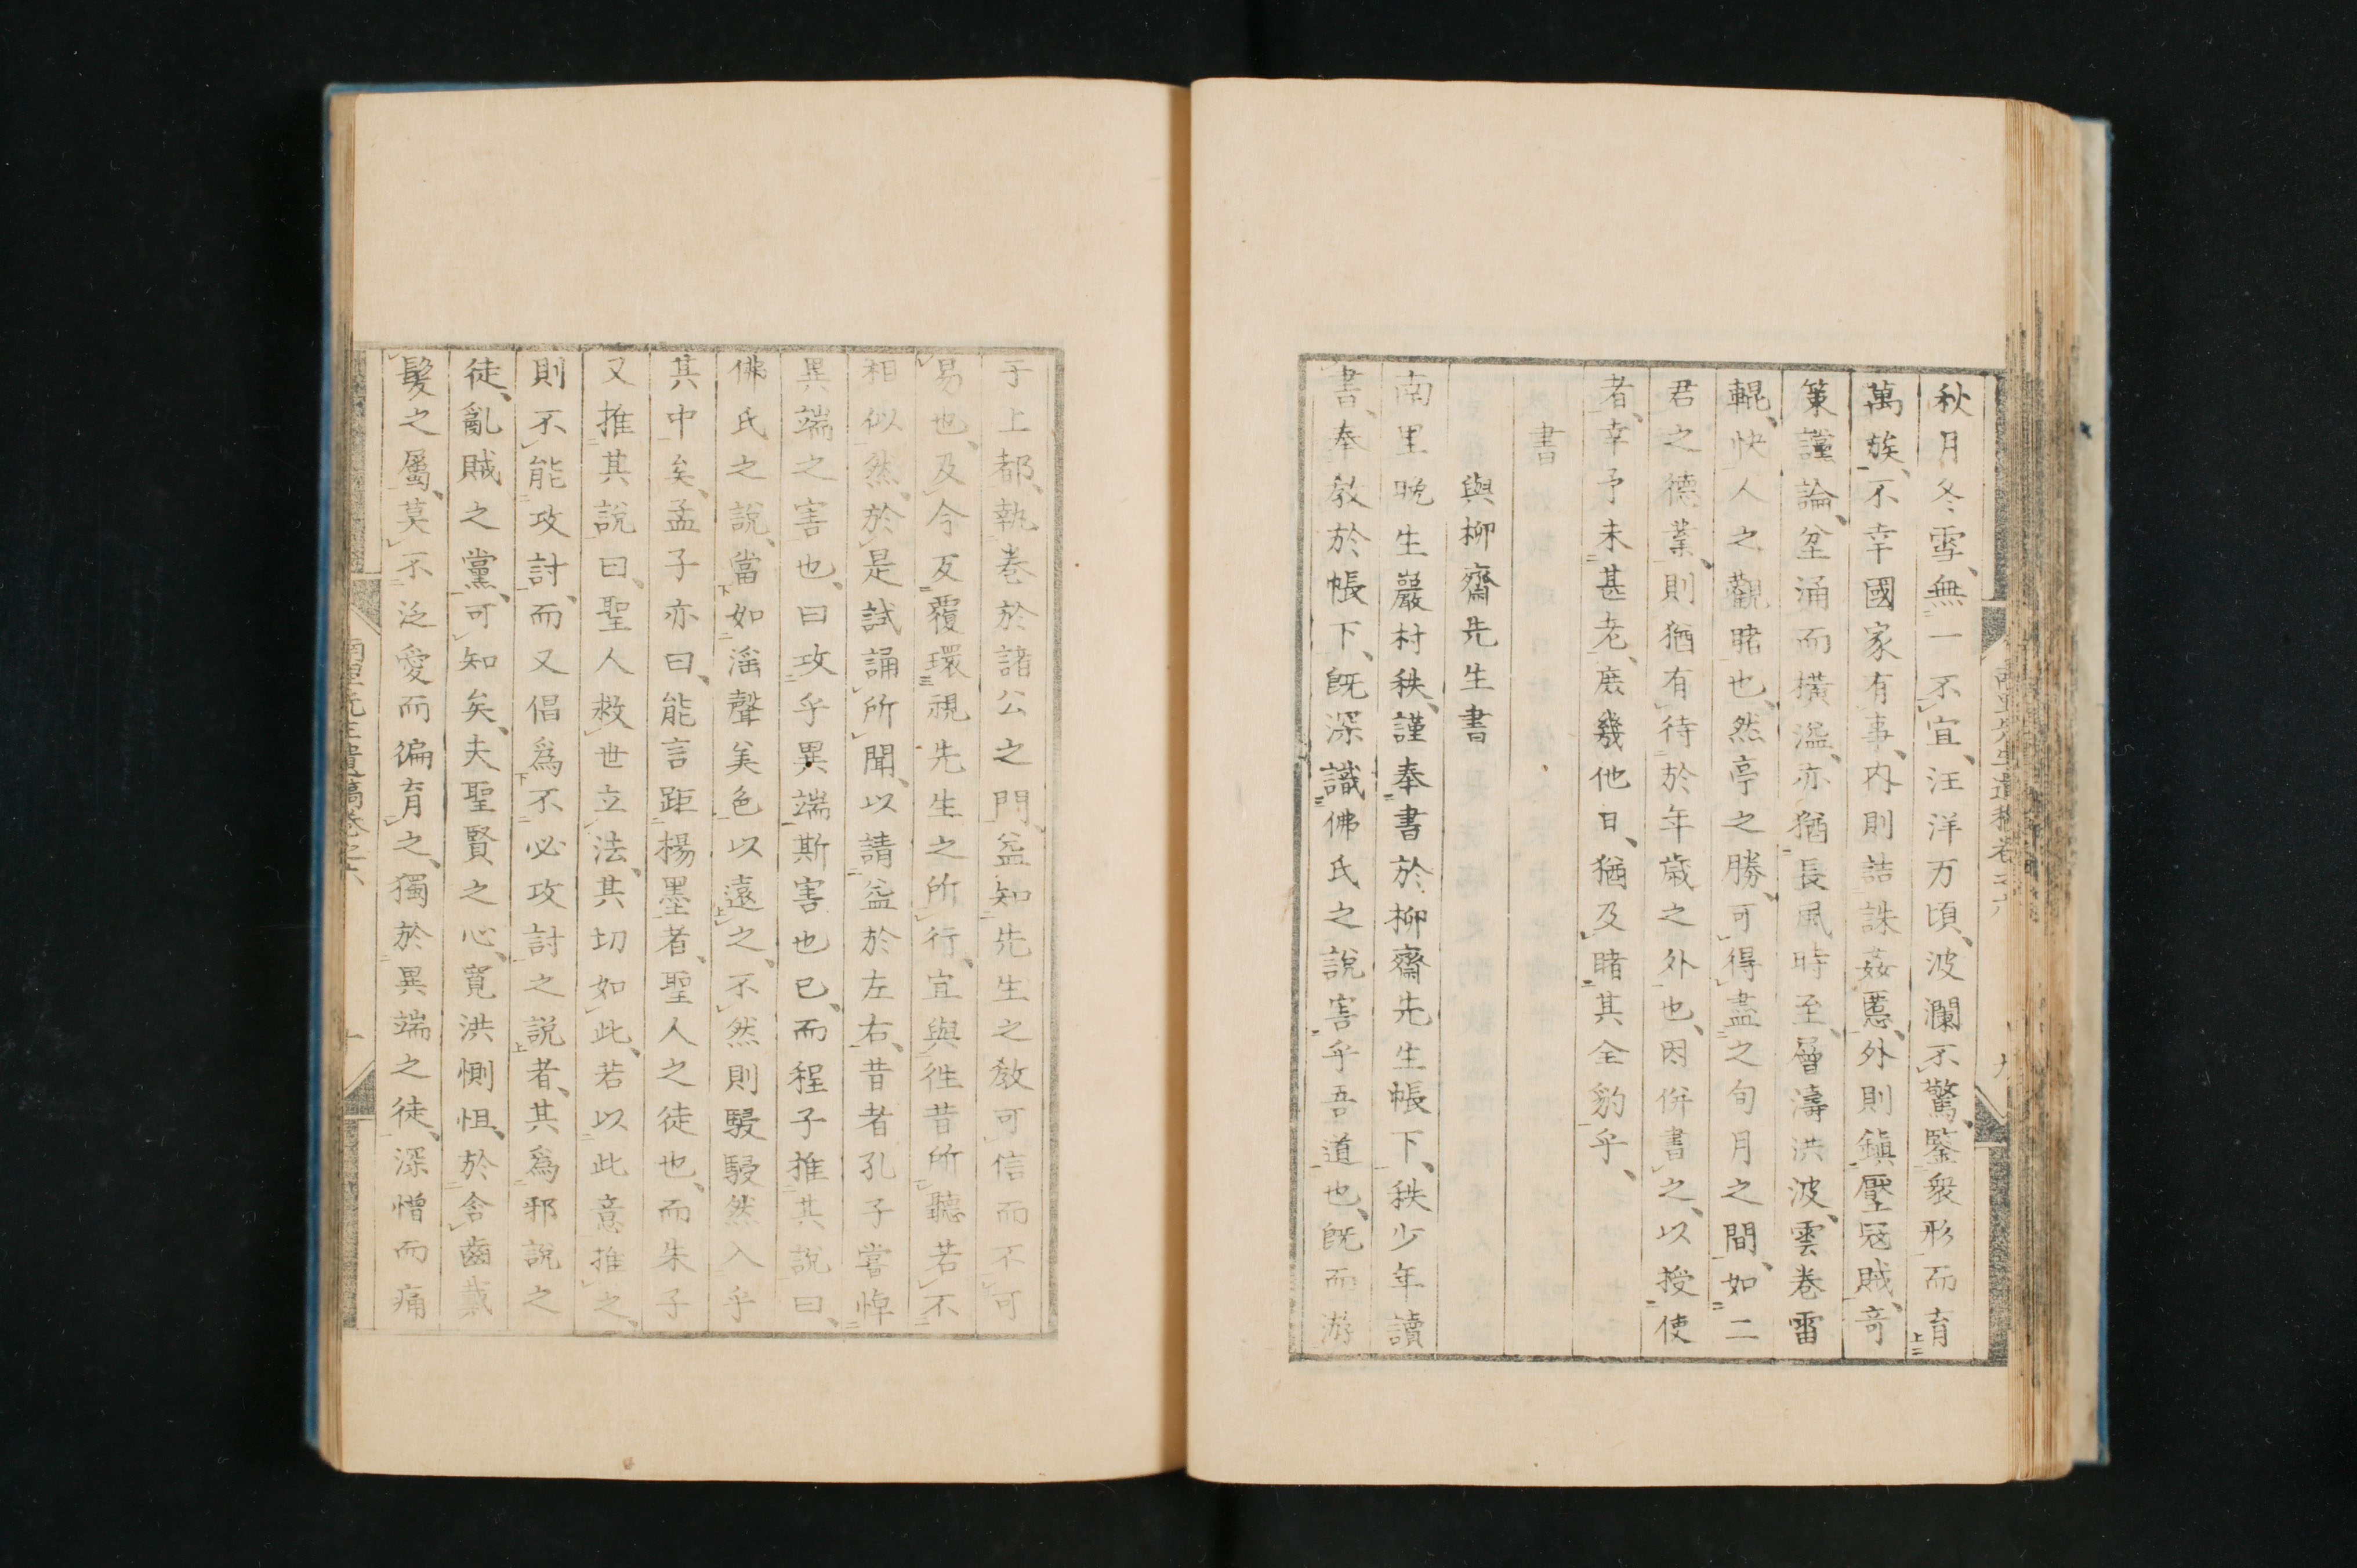 秋月冬雪、無一不宜、汪洋万頃、波瀾不驚、鑒衆形而育
萬族、不幸國家有事、内則誥誅姦慝、外則鎮壓寇賊、奇
策讜論、坌涌而横溢、亦猶長風時至、層濤洪波、雲巻雷
輥、快人之觀睹也、然亭之勝、可得盡之旬月之間、如二
君之德業、則猶有待於年歳之外也、因併書之、以授使
者、幸予未甚老、庶幾他日、猶及睹其全豹乎、
書
與柳齋先生書
南里晩生巖村秩、謹奉書於柳齋先生帳下、秩少年讀
書、奉教於帳下、既深識佛氏之說害乎吾道也、既而游
于上都、執巻於諸公之門、益知先生之教可信而不可
易也、及今反覆環視先生之所行、宜與徃昔所聽若不
相似然、於是試誦所聞、以請益於左右、昔者孔子嘗憚
異端之害也、曰攻乎異端斯害也已、而程子推其說曰、
佛氏之說、當如滛聲美色以遠之、不然則駸駸然入乎
其中矣、孟子亦曰、能言距楊墨者、聖人之徒也、而朱子
又推其說曰、聖人救世立法、其切如此、若以此意推之、
則不能攻討、而又倡爲不必攻討之説者、其爲邪說之
徒、亂賊之黨、可知矣、夫聖賢之心、寛洪惻怛、於含齒戴
髮之屬、莫不泛愛而徧育之、獨於異端之徒、深憎而痛
南里先生遺稿巻之六